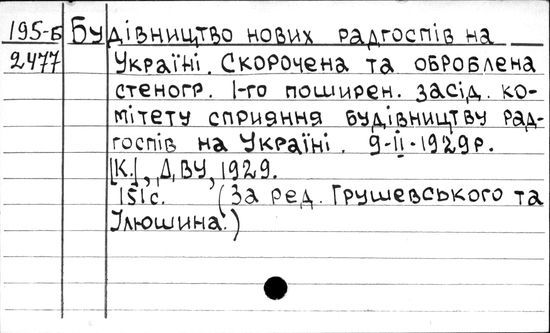 195-Б Будівництво нових радгоспів на
2477 Україні. Скорочена та оброблена
стеногр. 1-го поширен. засід. ко-
мітету сприяння будівництву рад-
госпів на Україні. 9-II-1929р.
[К.], ДВУ, 1929.
151с. (За ред. Грушевського та
Ілюшина.)